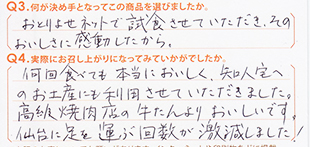 Q3.何が決め手となってこの商品を選びましたか。
おとりよせネットで試食させていただき、その
おいしさに感動したから。
Q4.実際にお召し上がりになってみていかがでしたか。
何回食べても本当においしく、知人宅へ
のお土産にも利用させていただきました。
高級焼肉店の牛たんよりおいしいです。
仙台に足を運ぶ回数が激減しました!